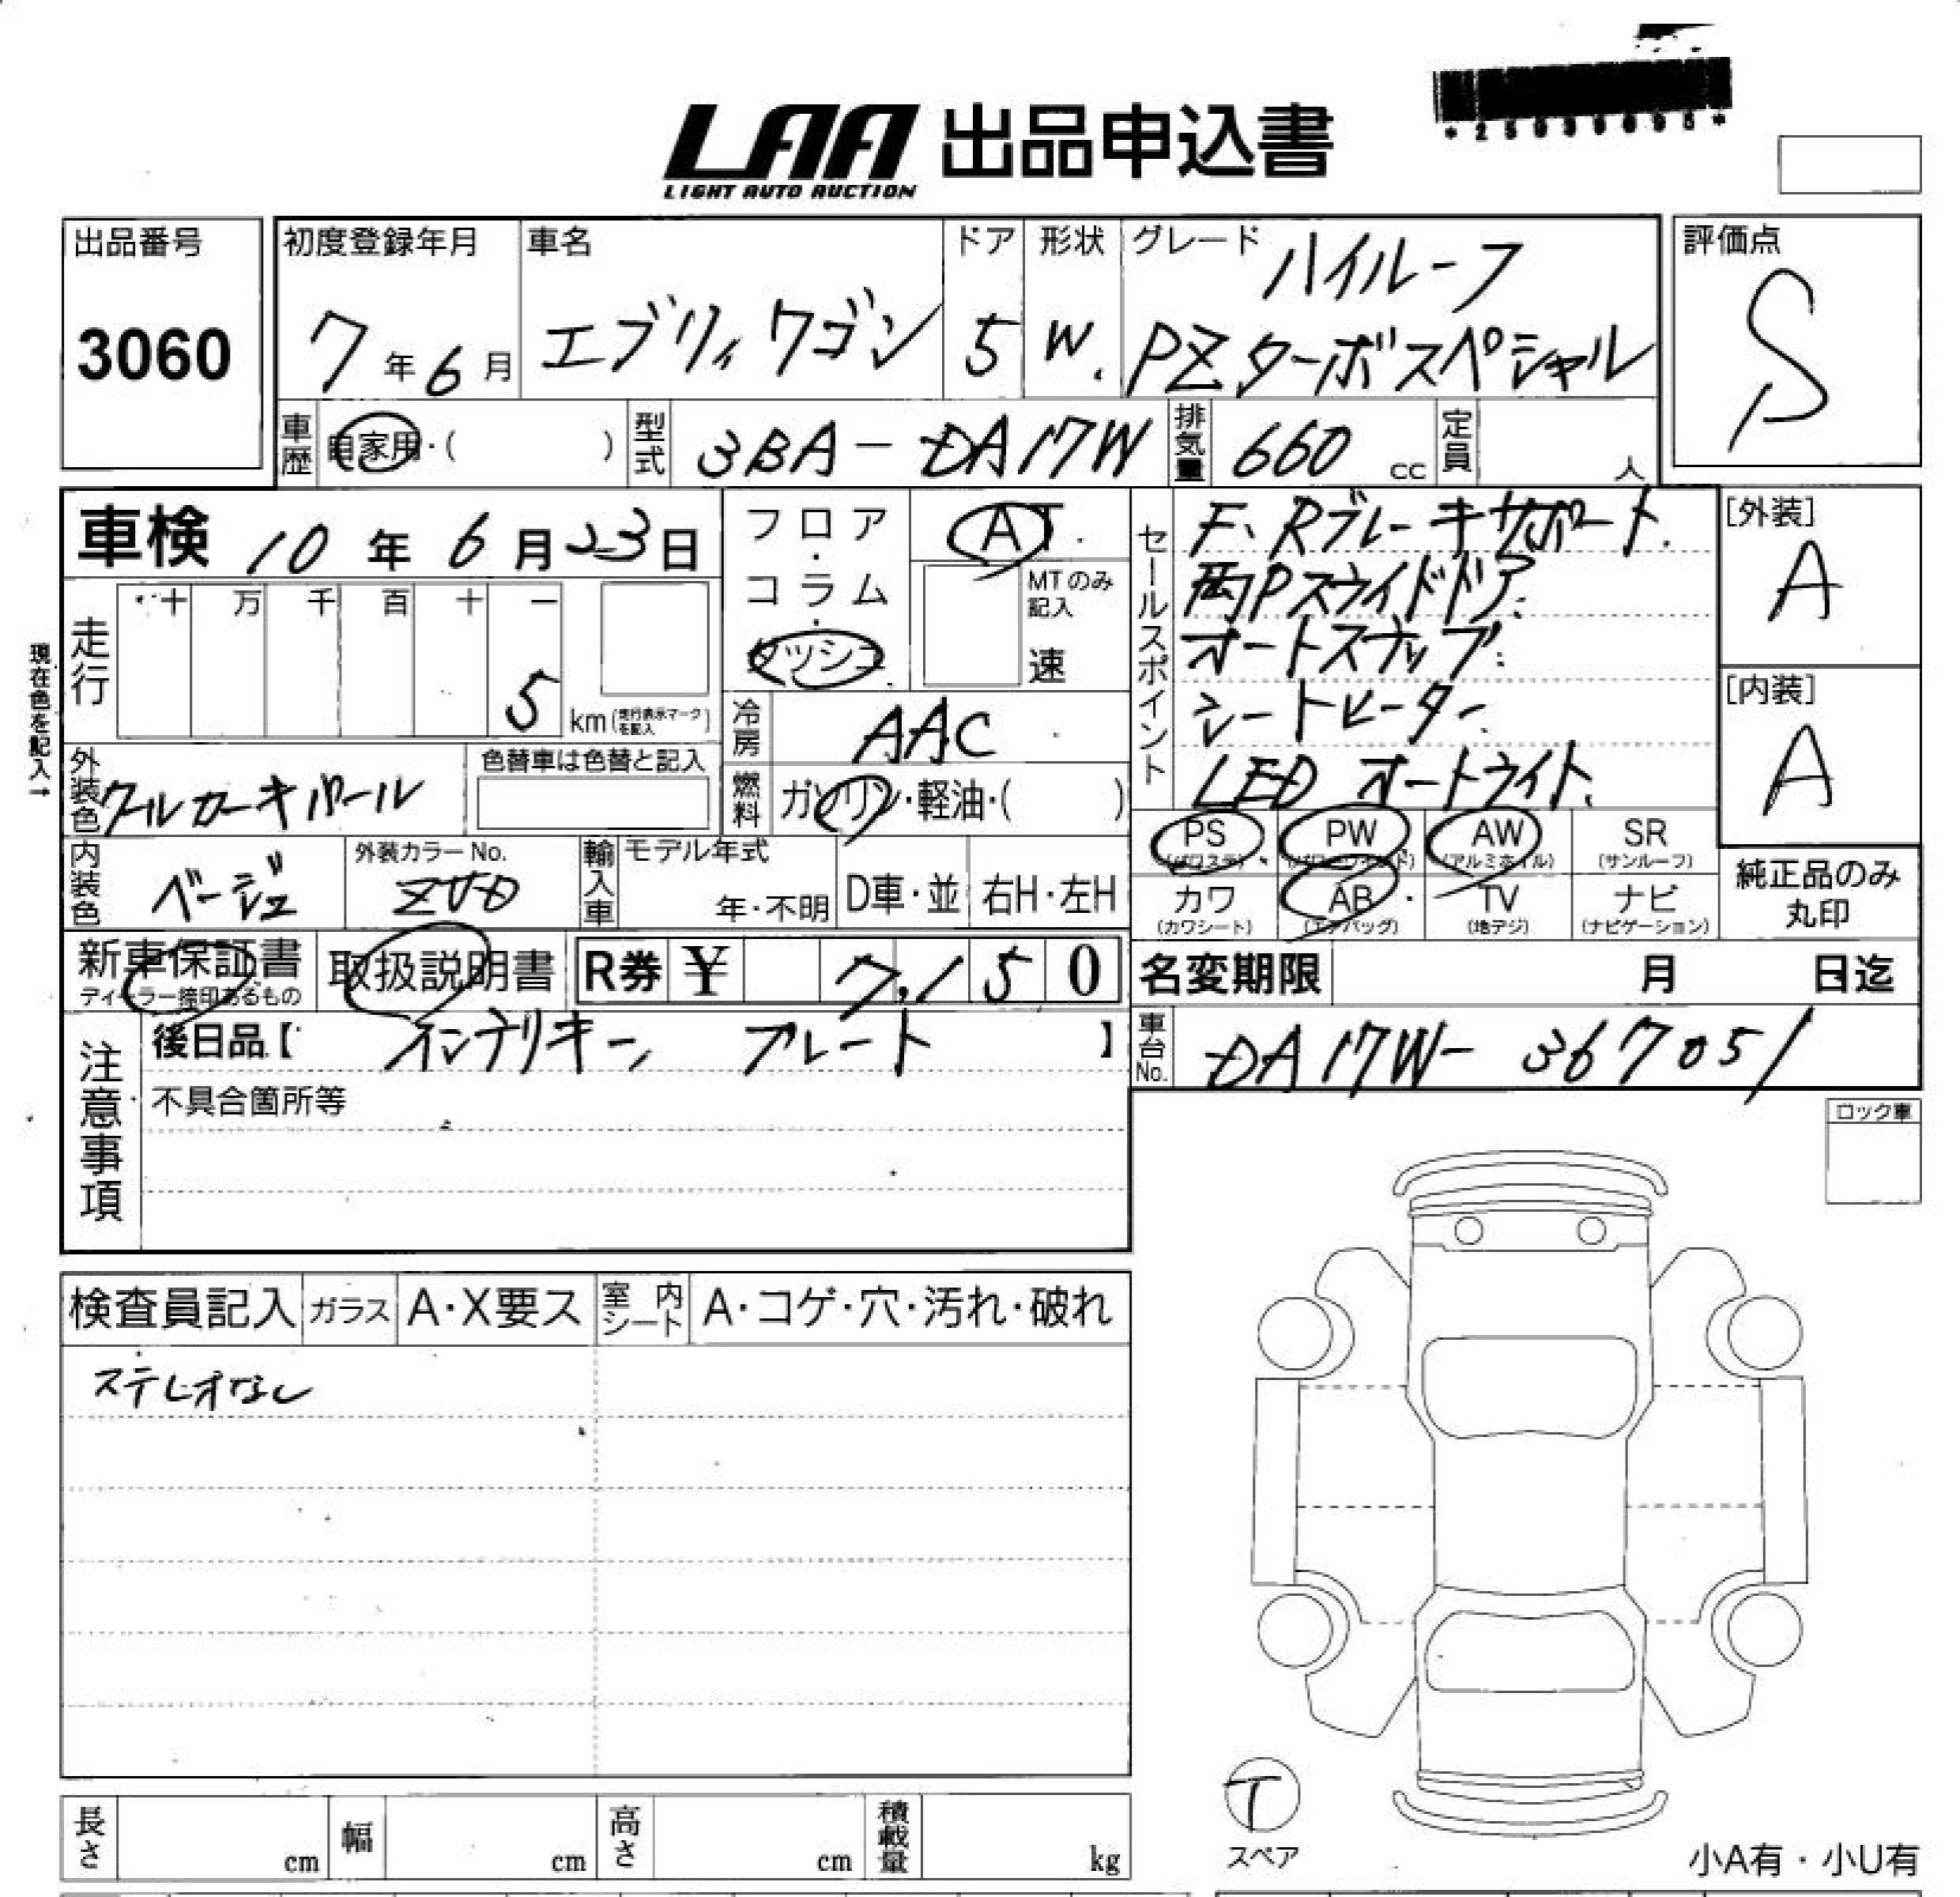 LAA 出品申込書
LIGHT AUTO AUCTION
*25039095*
出品番号
3060
初度登録年月
7年6月
車名
エブリィワゴン
ドア
5
形状
W.
グレード
ハイルーフ
PZターボスペシャル
評価点
S
車歴
自家用・( )
型式
3BA-DA17W
排気量
660 cc
定員
人
車検 10年6月23日
フロア・コラム・ダッシュ
AT
MTのみ記入
速
走行
十 万 千 百 十 一
5 km(走行表示マークを記入)
現在色を記入→
外装色
クールカーキパール
色替車は色替と記入
冷房
AAC
燃料
ガソリン・軽油・( )
内装色
ベージュ
外装カラーNo.
ZVD
輸入車
モデル年式
年・不明
D車・並
右H・左H
セールスポイント
F、Rブレーキサポート.
両Pスライドドア.
オートステップ.
シートヒーター.
LEDオートライト.
[外装]
A
[内装]
A
PS (パワステ)
PW (パワーウインド)
AW (アルミホイル)
SR (サンルーフ)
カワ (カワシート)
AB (エアバッグ)
TV (地デジ)
ナビ (ナビゲーション)
純正品のみ丸印
新車保証書
ディーラー捺印あるもの
取扱説明書
R券 ¥ 7,150
名変期限 月 日迄
注意事項
後日品【 インテリキー、プレート 】
不具合箇所等
車台No.
DA17W-367051
ロック車
検査員記入
ガラス
A・X要ス
室内シート
A・コゲ・穴・汚れ・破れ
ステレオなし
T
スペア
小A有・小U有
長さ cm
幅 cm
高さ cm
積載量 kg